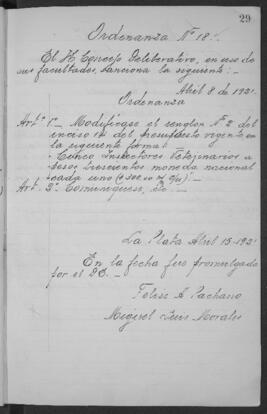 29
Ordenanza Nº 18.
El H. Concejo Deliberativo, en uso de
sus facultades, sanciona la siguiente: -
Abril 8 de 1921
Ordenanza
Artº 1º- Modifícase el renglon Nº 2 del
inciso 1º del Presupuesto vigente en
la siguiente forma:
Cinco Inspectores Veterinarios a
pesos trescientos moneda nacional
cada uno ($ 300.00 m/ c/u) -
Art. 2º Comuníquese, etc. -
La Plata Abril 15-1921
En la fecha fué promulgado
por el D.E. -
Felix A Pachano
Miguel Luis Morales